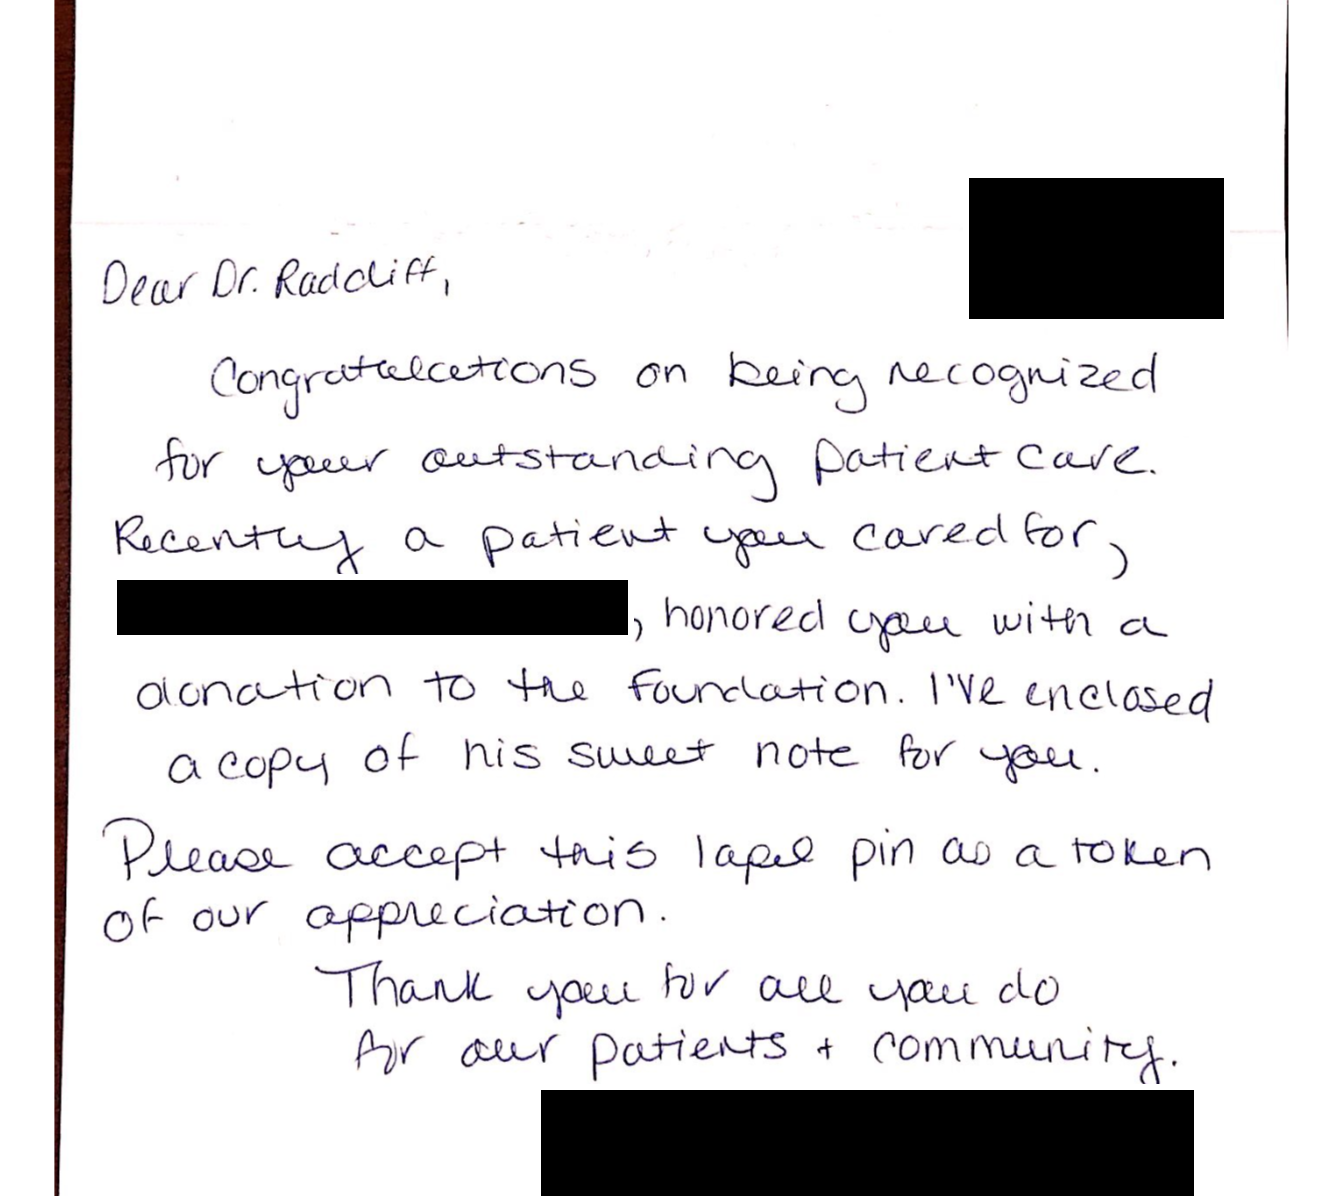 Dear Dr. Radcliff,
Congratulations on being recognized
for your outstanding patient care.
Recently a patient you cared for,
, honored you with a
donation to the Foundation. I've enclosed
a copy of his sweet note for you.
Please accept this lapel pin as a token
of our appreciation.
Thank you for all you do
for our patients + community.